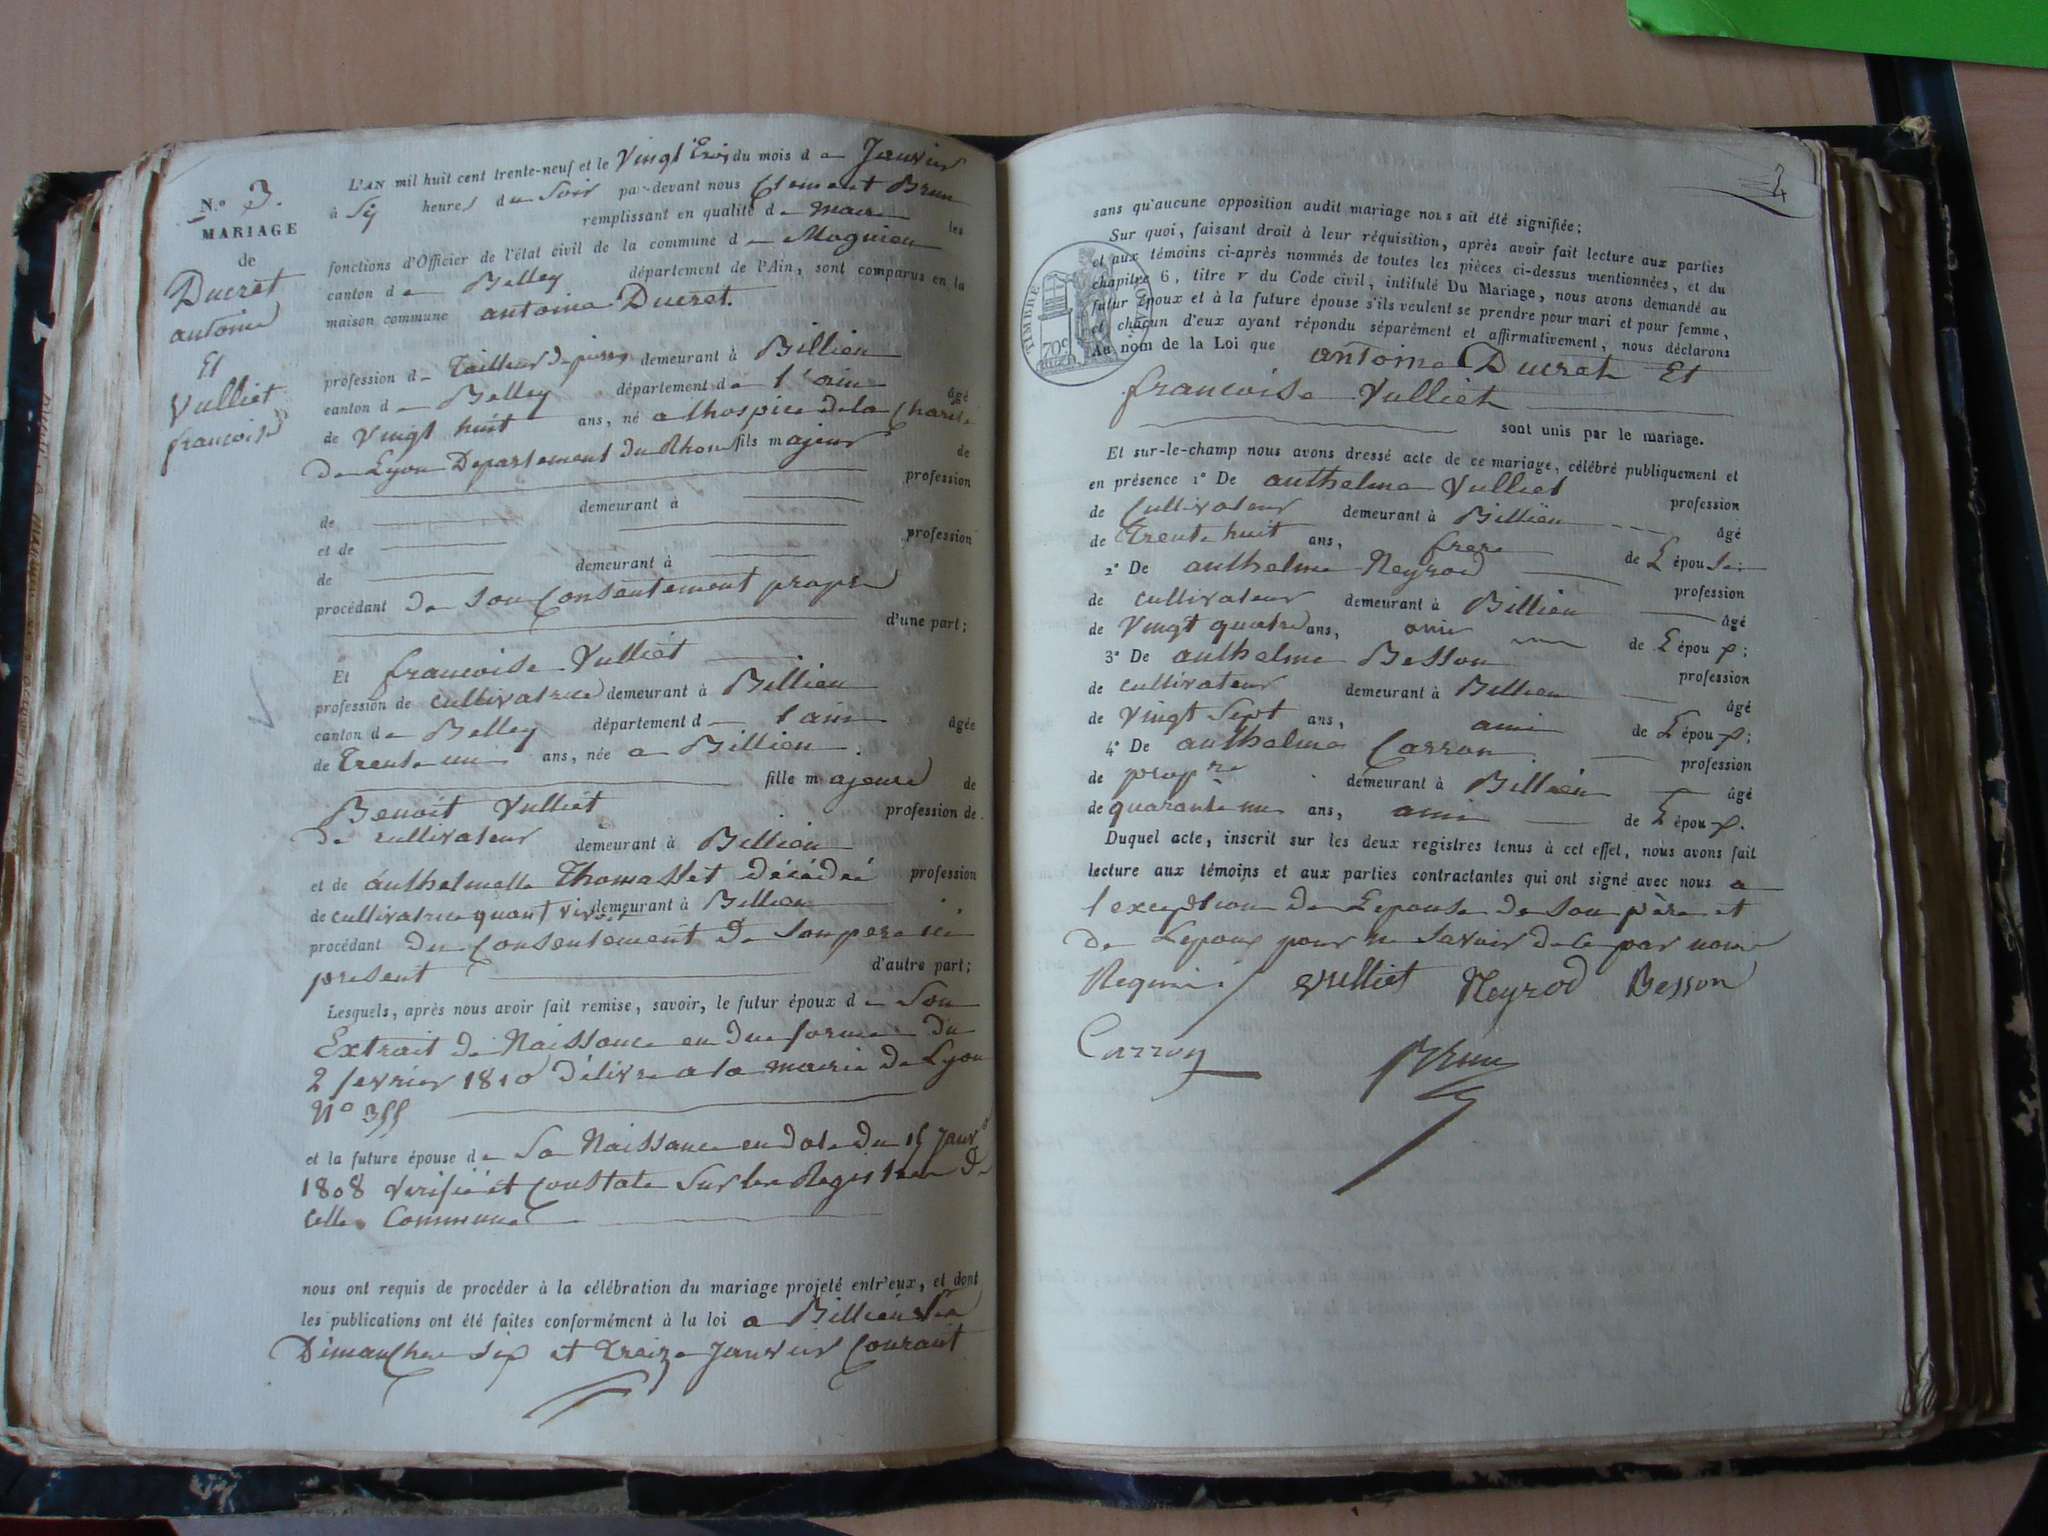 N.o 3.
MARIAGE
de
Ducret
antoine
Et
Vulliet
francoise
L'AN mil huit cent trente-neuf et le Vingt Trois du mois de Janvier
à Six heures du Soir par-devant nous Clement Brun
remplissant en qualité de maire les
fonctions d'Officier de l'état civil de la commune de Magnieu
canton de Belley département de l'Ain, sont comparus en la
maison commune antoine Ducret.
profession de Tailleur de pierre demeurant à Billieu
canton de Belley département de l'ain âgé
de Vingt huit ans, né a lhospice de la Charité
de Lyon Departement du Rhone fils majeur de
profession
de demeurant à
et de profession
de demeurant à
procédant de son Consentement propre
d'une part;
Et francoise Vulliét
profession de cultivatrice demeurant à Billieu
canton de Belley département de l ain âgée
de Trente un ans, née a Billieu.
fille majeure de
Benoit Vulliét profession de
de cultivateur demeurant à Billieu
et de anthelmette Thomasset décédée profession
de cultivatrice quant vivait demeurant à Billieu
procédant du Consentement de Son pere ici
present d'autre part;
Lesquels, après nous avoir fait remise, savoir, le futur époux de Son
Extrait de Naissance en due forme du
2 fevrier 1810 délivre a la mairie de Lyon
No 355
et la future épouse de Sa Naissance en date du 15 Janvr
1808 verifié et Constate Sur les Registres de
cette Commune
nous ont requis de procéder à la célébration du mariage projeté entr'eux, et dont
les publications ont été faites conformément à la loi a Billieu les
Dimanches Six et treize Janvier Courant
2
sans qu'aucune opposition audit mariage nous ait été signifiée;
Sur quoi, faisant droit à leur réquisition, après avoir fait lecture aux parties
et aux témoins ci-après nommés de toutes les pièces ci-dessus mentionnées, et du
chapitre 6, titre v du Code civil, intitulé Du Mariage, nous avons demandé au
futur époux et à la future épouse s'ils veulent se prendre pour mari et pour femme,
et chacun d'eux ayant répondu séparément et affirmativement, nous déclarons
Au nom de la Loi que antoine Ducret Et
francoise Vulliet
sont unis par le mariage.
TIMBRE ROYAL
70c
Et sur-le-champ nous avons dressé acte de ce mariage, célébré publiquement et
en présence 1° De anthelme Vulliet profession
de Cultivateur demeurant à Billieu âgé
de Trente huit ans, frere de L'épouse
2° De anthelme Neyrod profession
de cultivateur demeurant à Billieu âgé
de Vingt quatre ans, ami de L'époux;
3° De anthelme Besson profession
de cultivateur demeurant à Billieu âgé
de Vingt Sept ans, ami de L'époux;
4° De anthelme Carron profession
de propre demeurant à Billieu âgé
de quarante un ans, ami de L'époux.
Duquel acte, inscrit sur les deux registres tenus à cet effet, nous avons fait
lecture aux témoins et aux parties contractantes qui ont signé avec nous a
l exception de Lepouse de Son père et
de Lepoux pour ne Savoir de ce par nous
Requis / Vulliet Neyrod Besson
Carron Brun